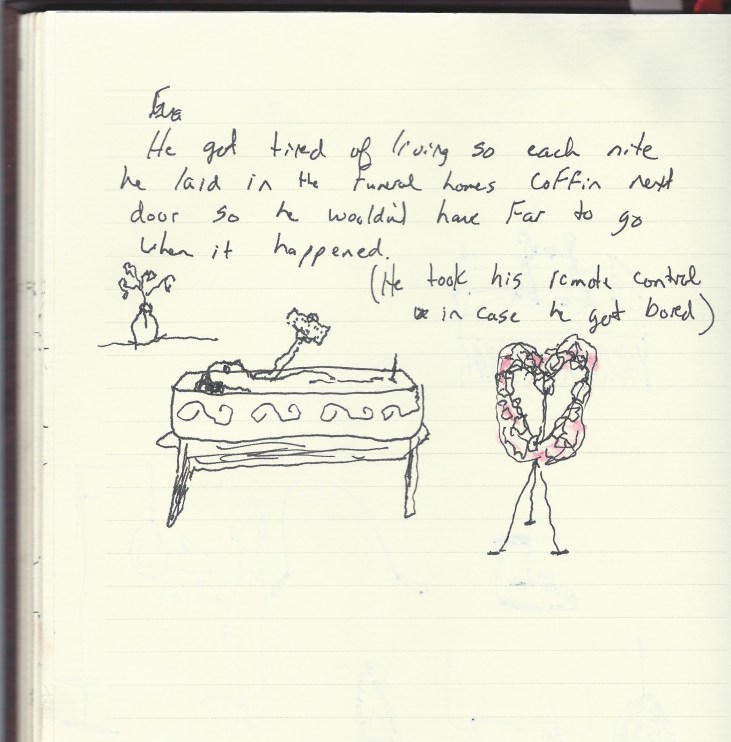 He got tired of living so each nite
he laid in the Funeral homes Coffin next
door so he wouldn't have Far to go
when it happened.
(He took his remote control
in case he got bored)